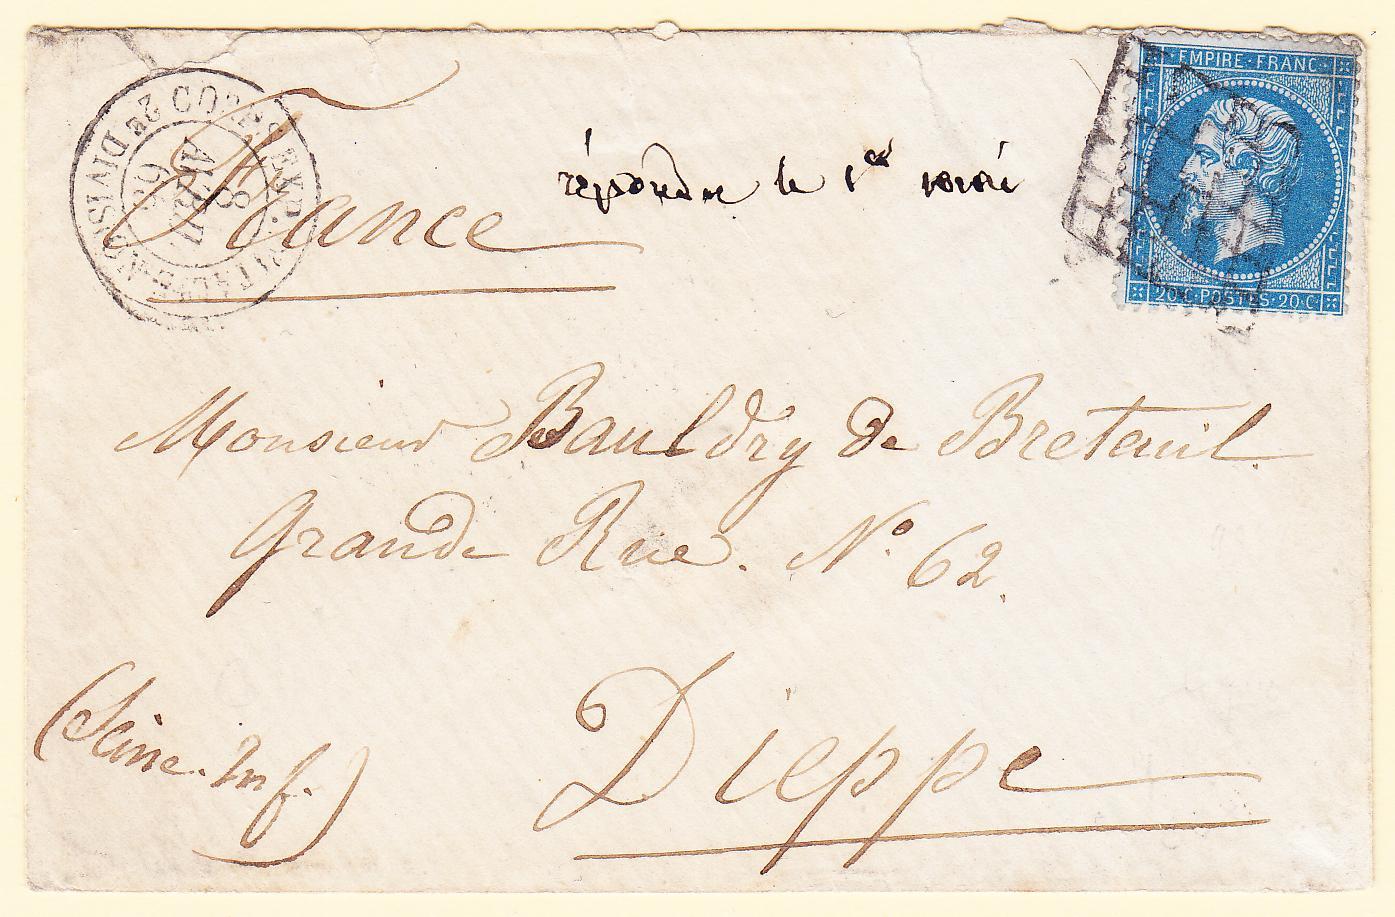 France
répondu le 1er mai
EMPIRE·FRANC·
20·C·POSTES·20·C·
CORPS EXP. D'ITALIE
2e DIVISION
8
AVRIL
Monsieur Bauldry de Breteuil
Grande Rue. N° 62.
Dieppe
(Seine. Inf.)